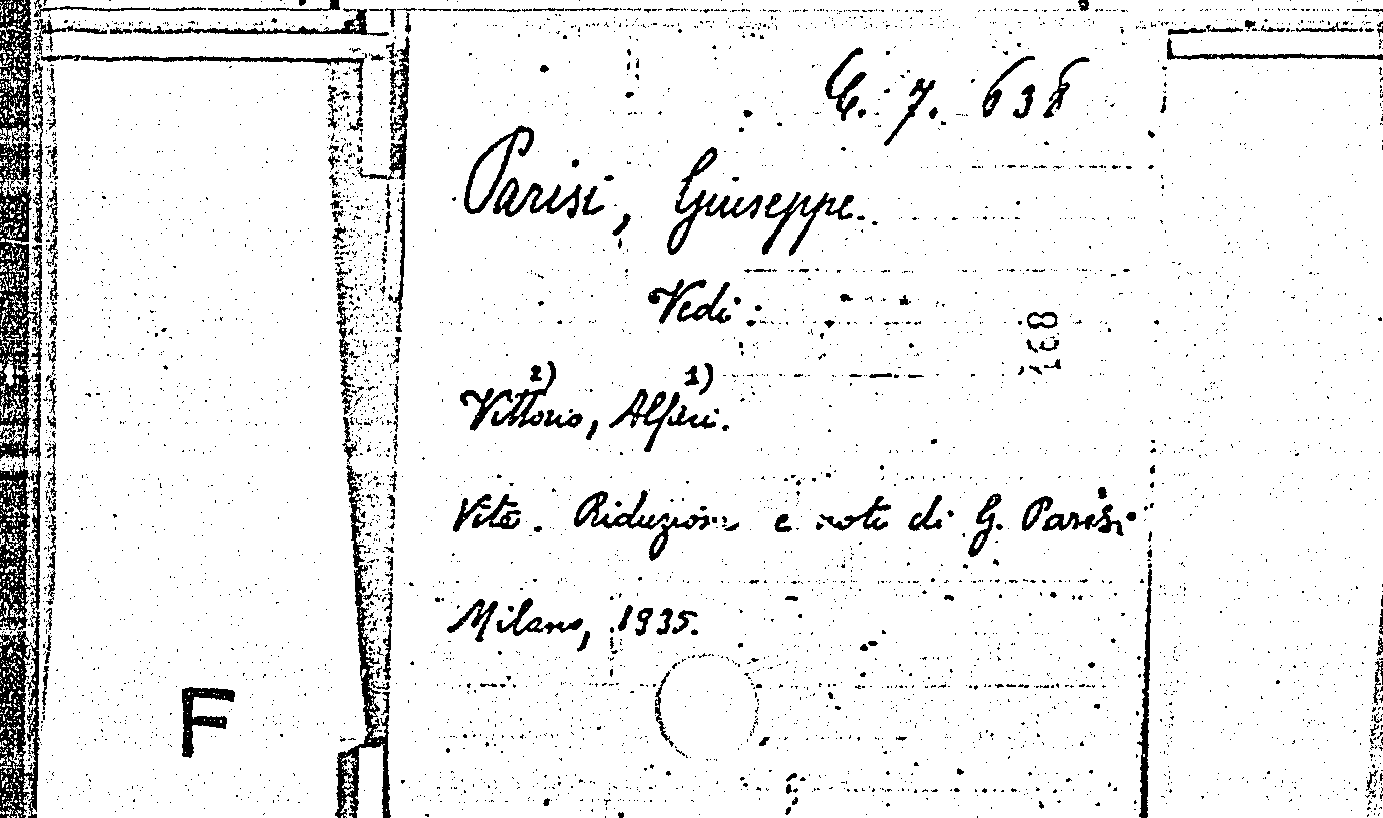 E. 7. 638
Parisi, Giuseppe.
Vedi:
168
2) 1)
Vittorio, Alfieri.
Vita. Riduzione e note di G. Parisi.
Milano, 1935.
F